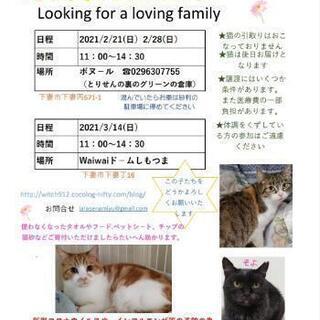 Looking for a loving family
日程 2021/2/21(日) 2/28(日)
時間 11：00～14：30
場所 ボヌール ☎0296307755
(とりせんの裏のグリーンの倉庫)
下妻市下妻丙671-1
混んでいたらお隣は砂利の
駐車場に停めてください
日程 2021/3/14(日)
時間 11：00～14：30
場所 Waiwaiドームしもつま
下妻市下妻丁16
★猫の引取りはおこ
なっておりません
★猫は後日お届けと
なります
★譲渡にはいくつか
条件があります。
また医療費の一部
負担があります。
★体調をくずしてい
る方の参加はご遠慮
ください
この子たちを
どうかよろし
くお願いいた
します
http://witch912.cocolog-nifty.com/blog/
お問合せ
使わなくなったタオルやフード.ペットシート、チップの
猫砂などご寄付いただけましたらたいへん助かります。
そよ